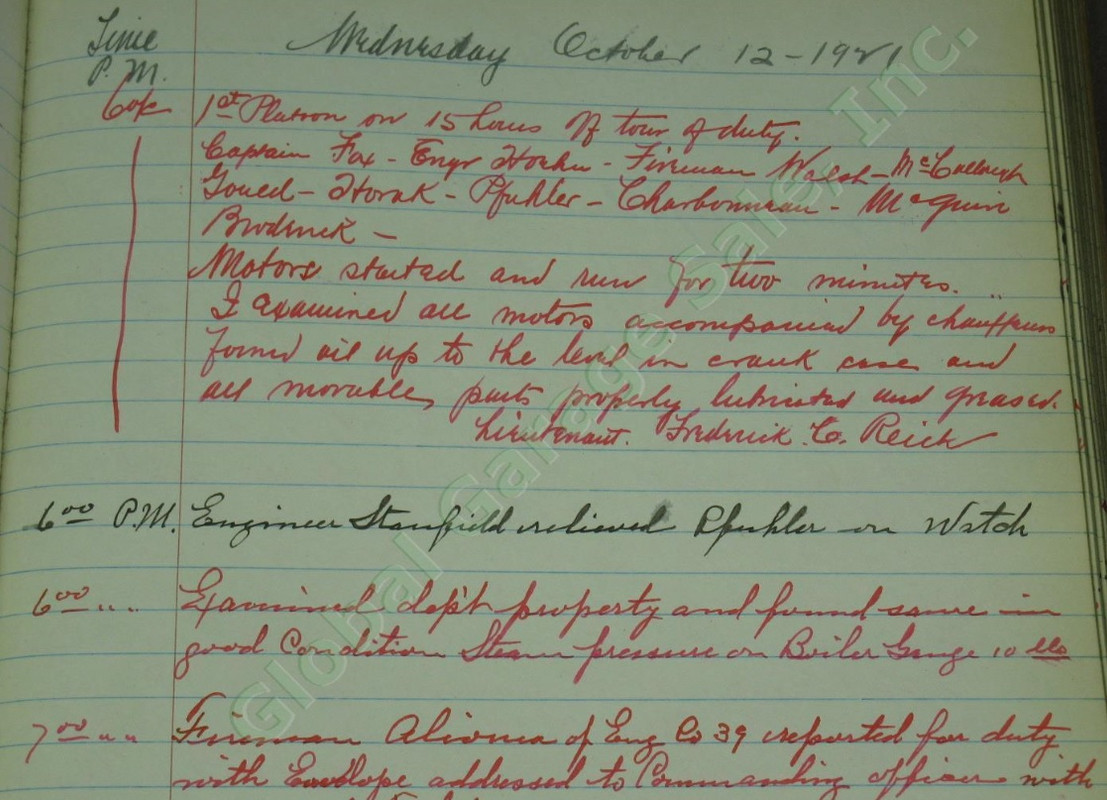 Time Wednesday October 12-1921
P.M.
6 o/c 1st Platoon on 15 hours Of tour of duty.
Captain Fox - Engr - Fireman Walsh - McCullough
Goued - Horak - Pfuhler - Charbonneau - McGuin
Broderick -
Motors started and run for two minutes.
I examined all motors accompanied by chauffeurs
found oil up to the level in crank case and
all movable parts properly lubricated and greased.
Lieutenant. Frederick C. Reich
6 00 P.M. Engineer Stanfield relieved Pfuhler on Watch
6 00 " " Examined dep't property and found same in
good Condition Steam pressure on Boiler Gauge 10 lbs
7 00 " " Fireman of Eng Co 39 reported for duty
with Envelope addressed to Commanding officer with
Global Garage Sale, Inc.